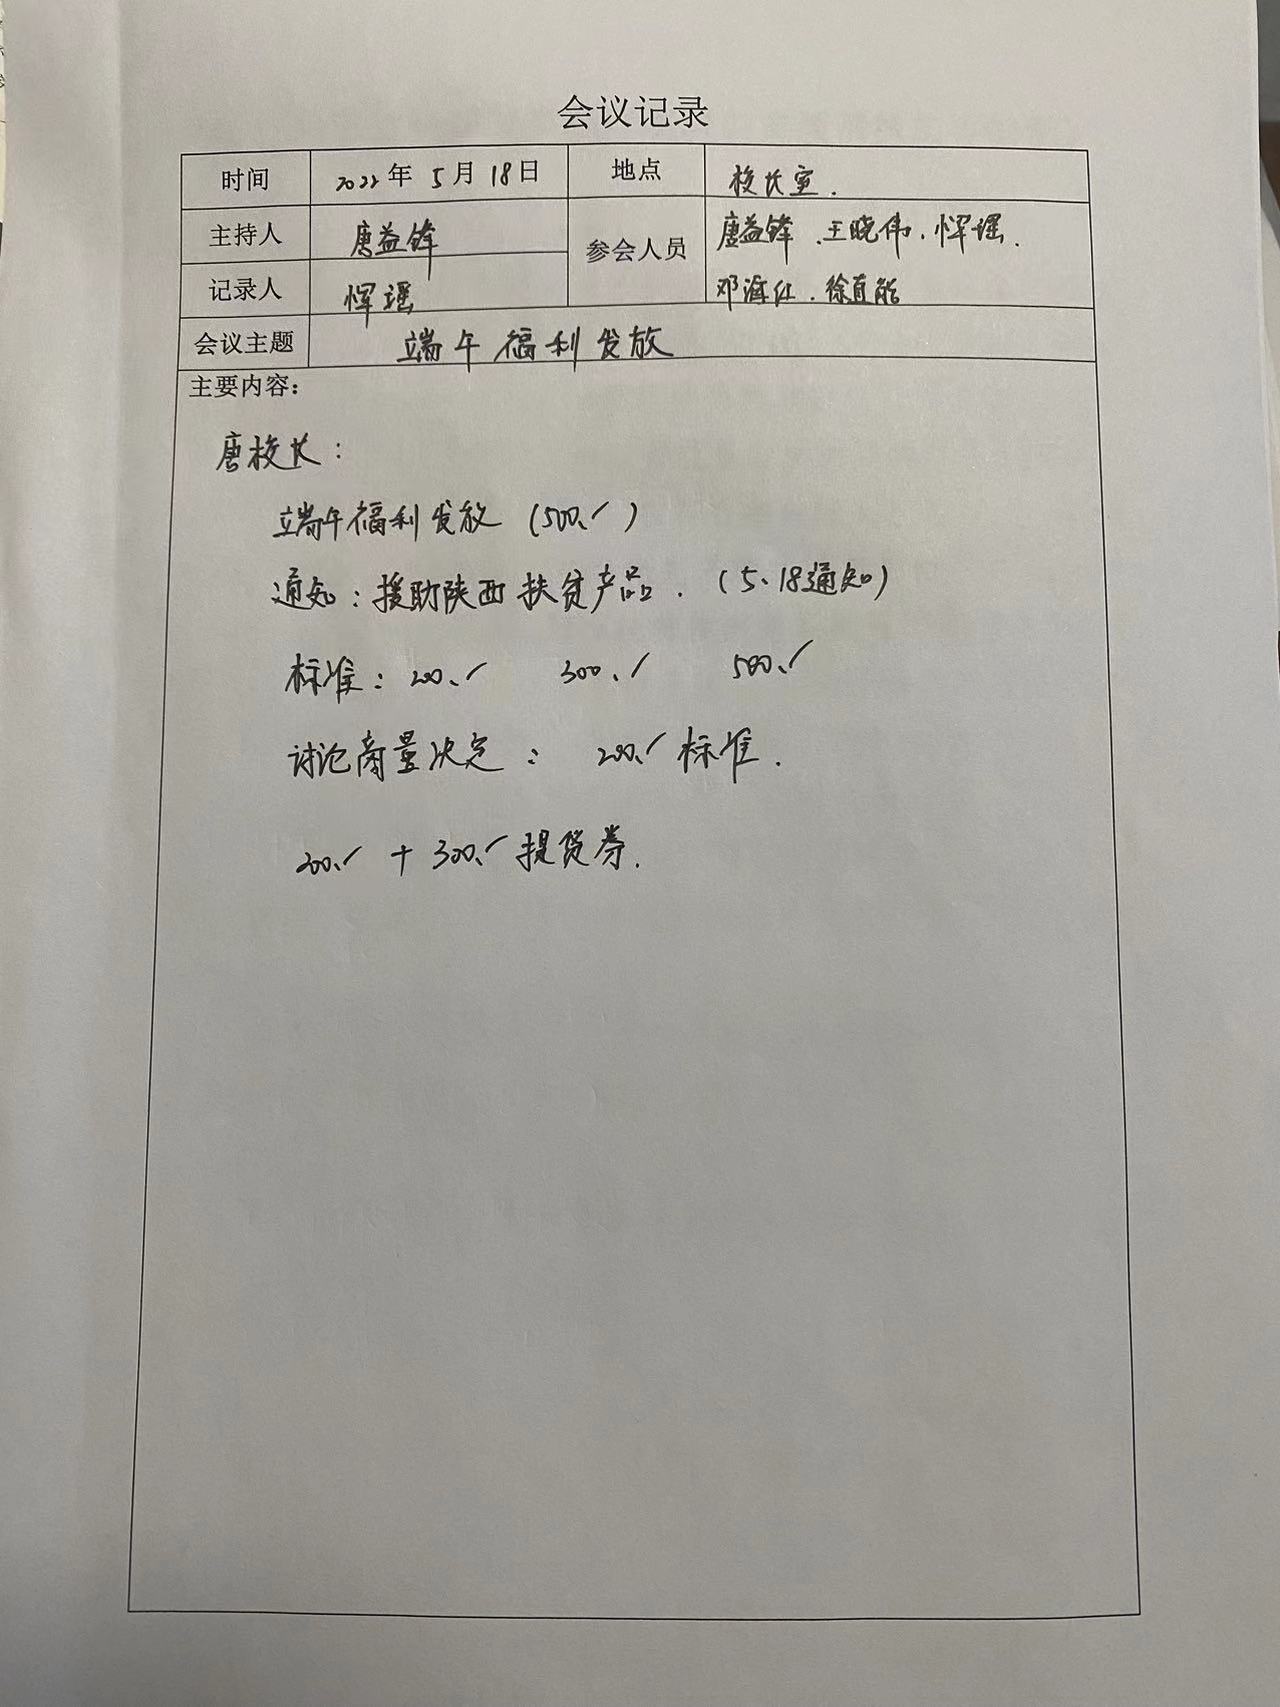 会议记录
时间 2022年 5月 18日 地点 校长室.
主持人 唐益锋 参会人员 唐益锋.王晓伟.恽瑶.
记录人 恽瑶 邓海红.徐直能
会议主题 端午福利发放
主要内容：
唐校长：
端午福利发放 (500.✓)
通知：援助陕西扶贫产品. (5、18通知)
标准：200.✓ 300.✓ 500.✓
讨论商量决定： 200.✓标准.
200.✓ + 300.✓提货券.